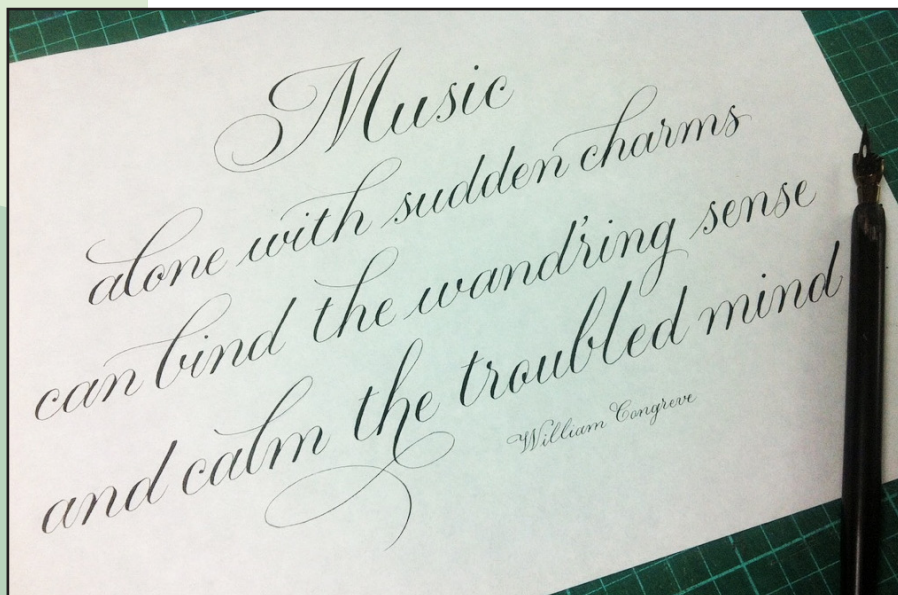 Music
alone with sudden charms
can bind the wand'ring sense
and calm the troubled mind
William Congreve